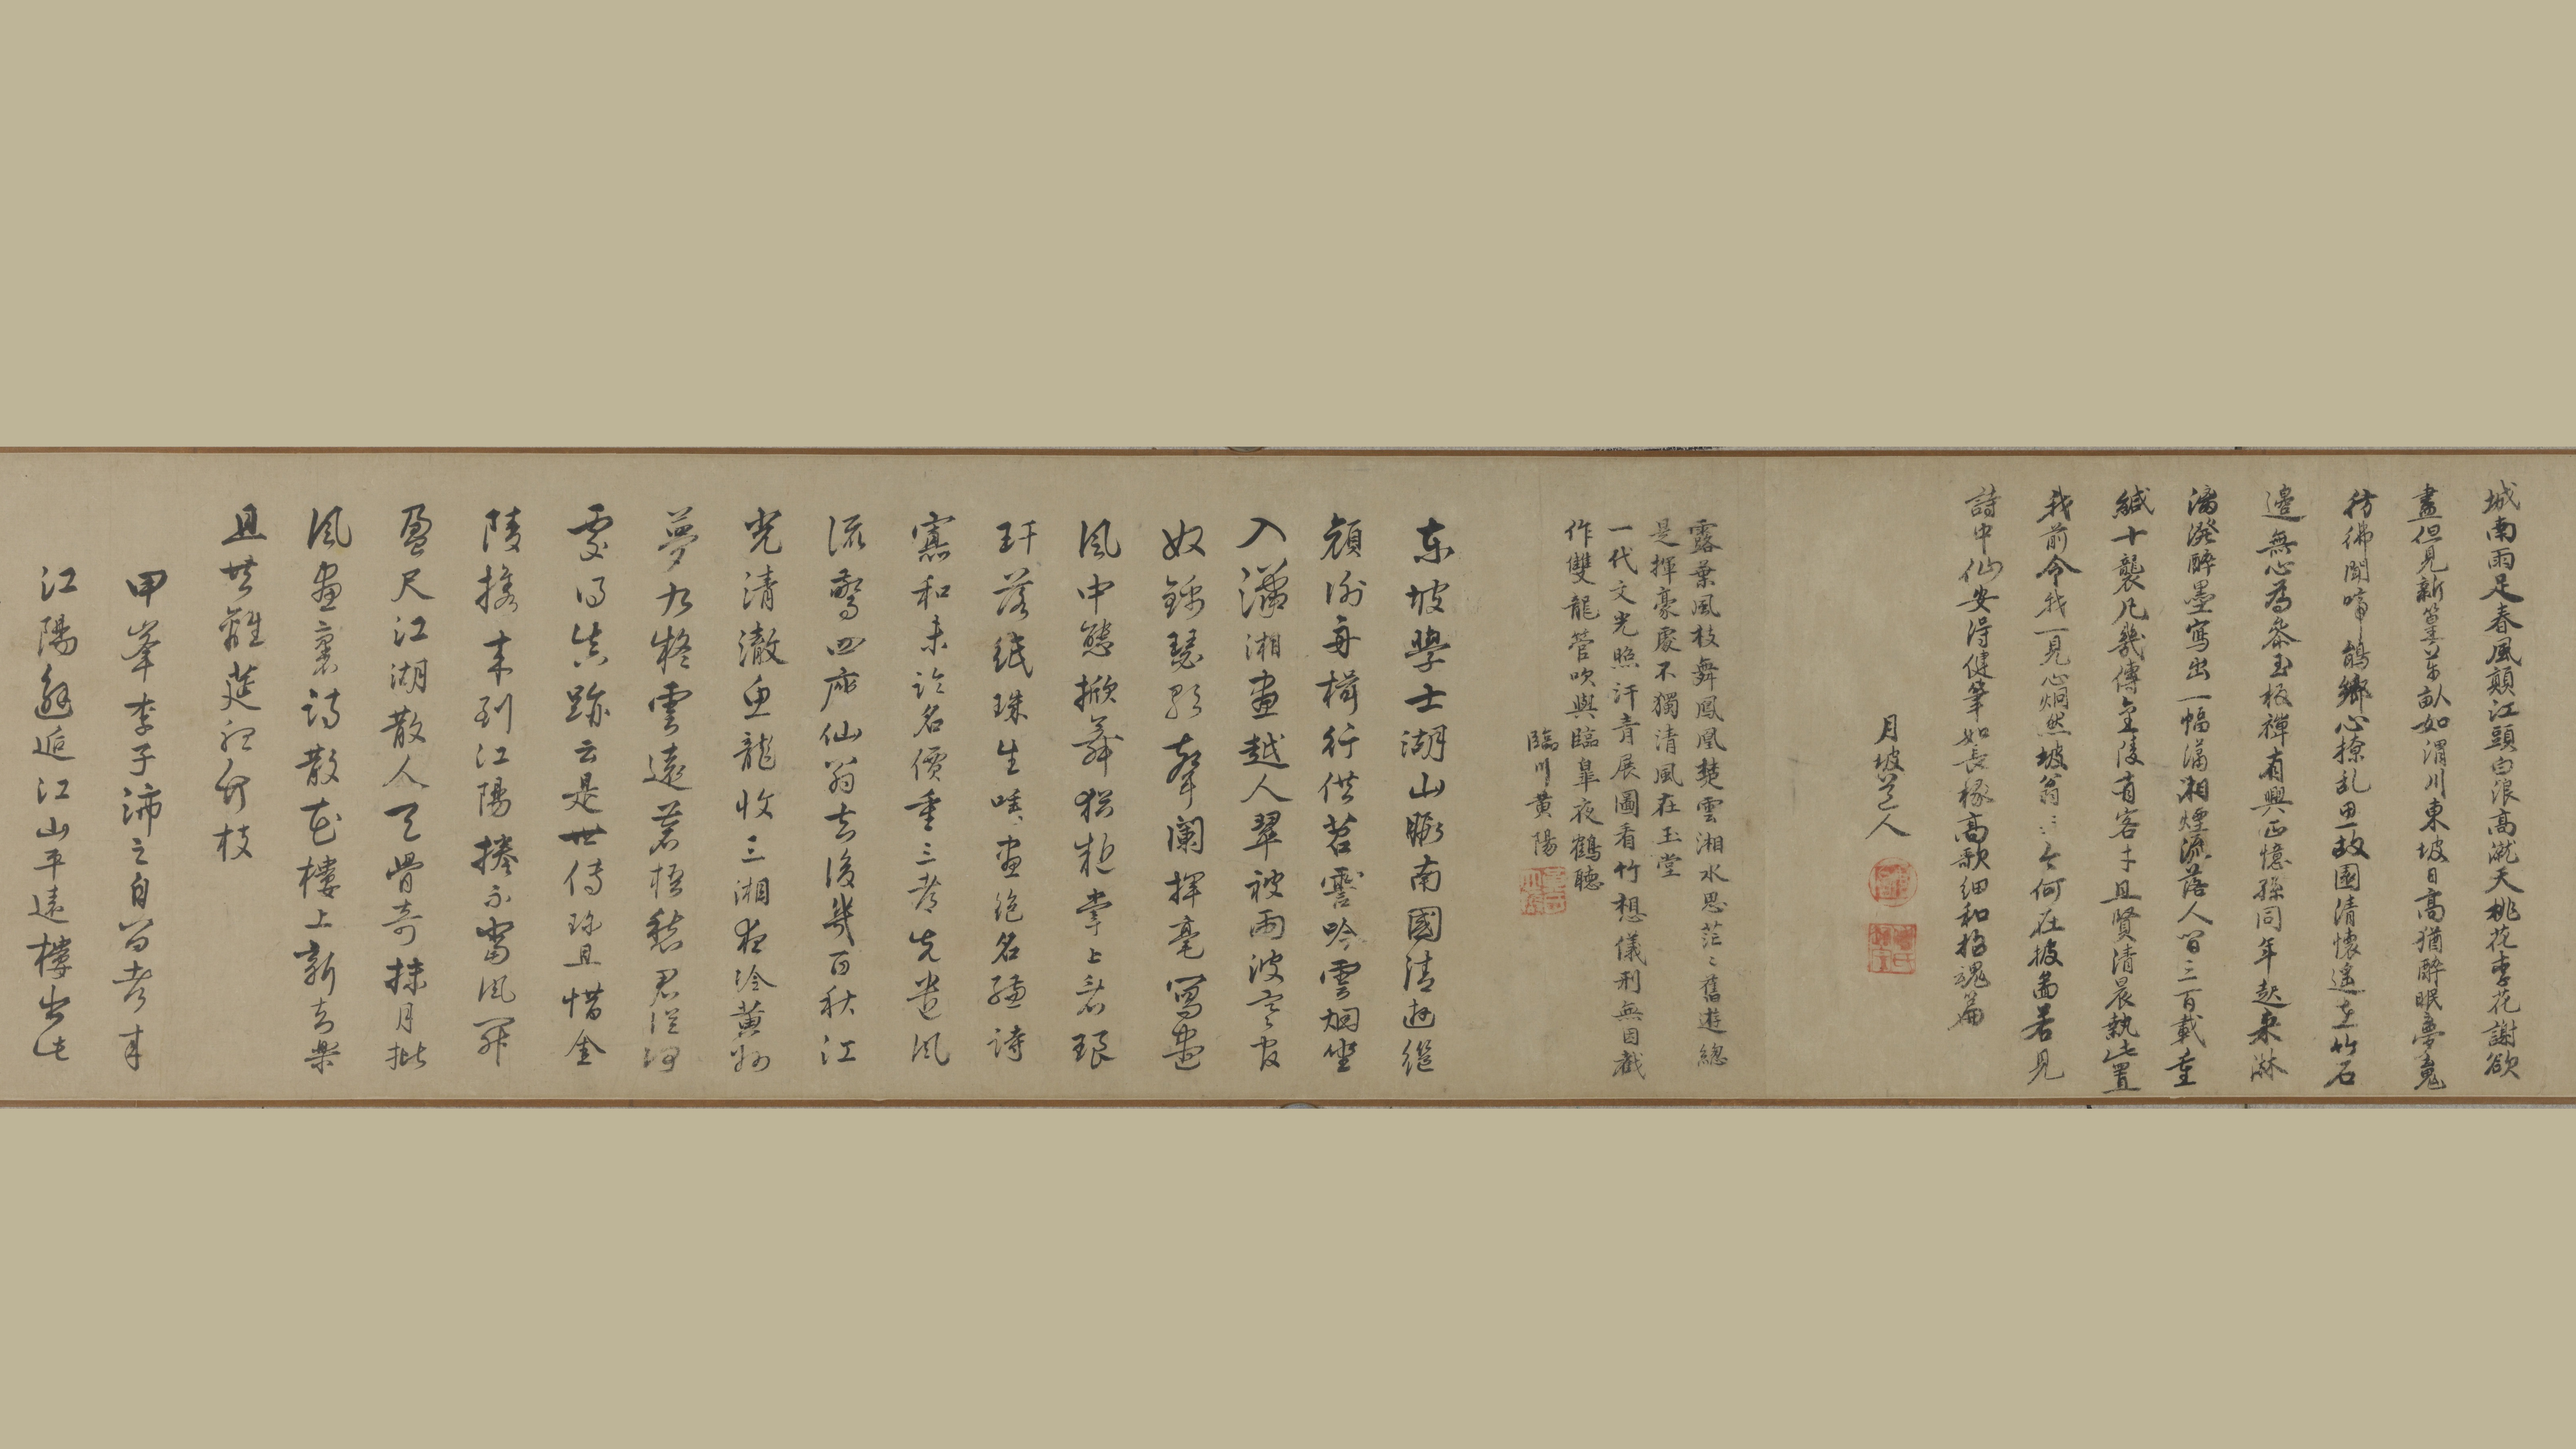 城南雨足春風顛江頭白浪高濺天桃花李花謝欲
盡但見新篁萬畝如渭川東坡日高猶醉眠夢魂
彷彿聞啼鵑鄉心撩乱思故國清懷遙在竹石
邊無心為參玉板禪有興正憶孫同年起來淋
漓潑醉墨寫出一幅瀟湘煙流落人間三百載重
緘十襲凡幾傳金陵有客才且賢清晨執此置
我前令我一見心炯然坡翁坡翁今何在披啚若見
詩中仙安得健筆如長椽高歌細和招魂篇
月坡道人
露葉風枝舞鳳凰楚雲湘水思茫〻舊遊總
是揮豪處不獨清風在玉堂
一代文光照汗青展圖看竹想儀刑無因截
作雙龍管吹與臨皐夜鶴聽
臨川黃陽
東坡學士湖山眇南國清遊繼
舟楫行供苕霅吟雲烟坐
入瀟湘畫越人翠被雨波寒
奴錦瑟聲闌揮毫寫
風中態掀舞猶掌上看琅
玕落紙珠生唾畫絕名詩
寡和未論名價重三先風
流驚四座仙翁去後幾百秋江
光清澈魚龍收三湘夜冷黃州
夢九疑雲遠蒼梧愁君從何
處得真跡云是世傳珍且惜金
陵攜來到江陽捲不當風
盈尺江湖散人天骨奇抹月批
風畫裏詩散花樓上新音樂
且共離筵詠竹枝
甲峯李子沛之自留都來
江陽邂逅江山平遠樓出此